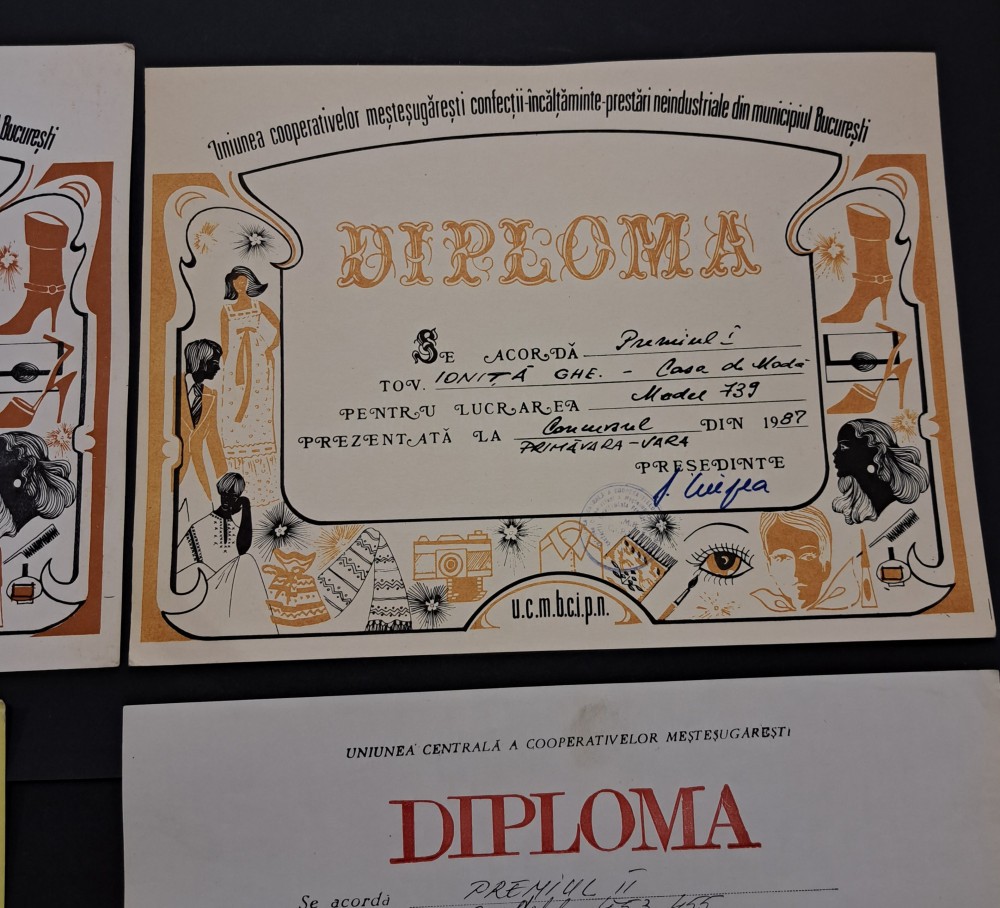 București
Uniunea cooperativelor meșteșugărești confecții-încălțăminte-prestări neindustriale din municipiul București
DIPLOMA
SE ACORDĂ Premiul I
TOV. IONIȚĂ GHE. - Casa de Modă
PENTRU LUCRAREA Model 739
PREZENTATĂ LA Concursul DIN 1987
PRIMĂVARA-VARA
PREȘEDINTE
u.c.m.b.c.i.p.n.
UNIUNEA CENTRALĂ A COOPERATIVELOR MEȘTEȘUGĂREȘTI
DIPLOMA
Se acordă PREMIUL II